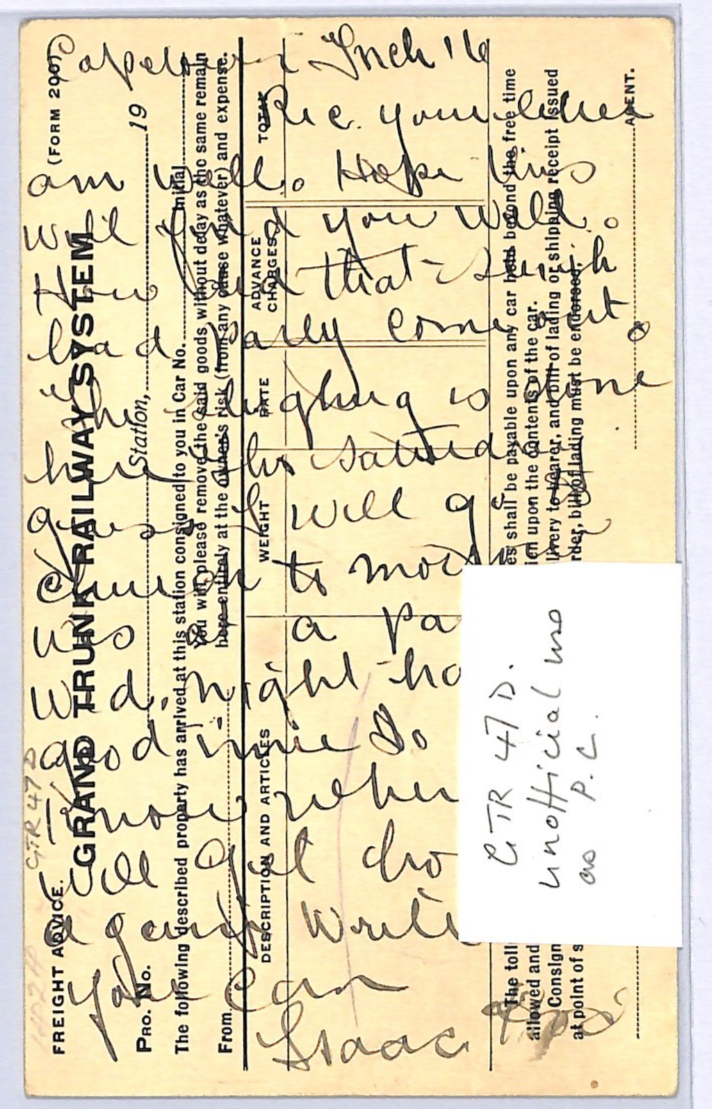 Inch 16
Rec. your letter
am well. Hope this
will find you well.
How did that sleigh
load party come out
The sleighing is gone
here
guess I will go to
church to
was to a
Wed. night
good time Do
know when
will get
again Write
you can
Isaac
(FORM 200)
GRAND TRUNK RAILWAY SYSTEM
FREIGHT ADVICE.
Station, 19
PRO. No.
The following described property has arrived at this station consigned to you in Car No. Initial
You will please remove the said goods without delay as the same remain
here entirely at the owner's risk (from any cause whatever) and expense.
From
DESCRIPTION AND ARTICLES
WEIGHT
RATE
ADVANCE CHARGES
TOTAL
The toll
es shall be payable upon any car held beyond the free time
allowed and
upon the contents of the car.
Consign
livery to bearer, and bill of lading or shipping receipt issued
at point of s
rder, bill of lading must be endorsed.
AGENT.
GTR 47 D
GTR 47 D.
unofficial use
as P.C.